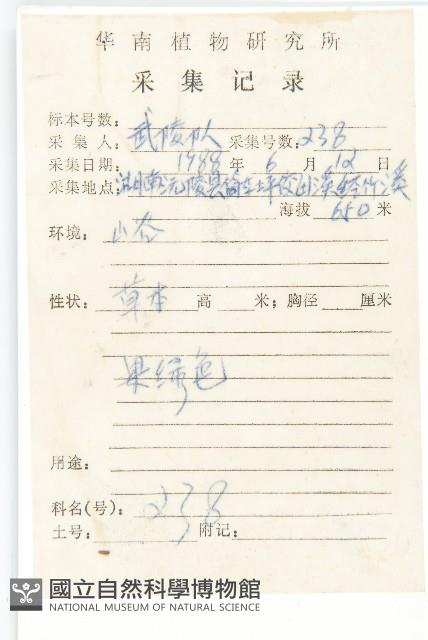 华南植物研究所
采集记录
标本号数：
采集人：武陵队 采集号数：238
采集日期：1988年6月12日
采集地点：湖南沅陵县
海拔 650 米
环境：山谷
性状：草本 高 米；胸径 厘米
果绿色
用途：
科名(号)：238
土号： 附记：
國立自然科學博物館
NATIONAL MUSEUM OF NATURAL SCIENCE